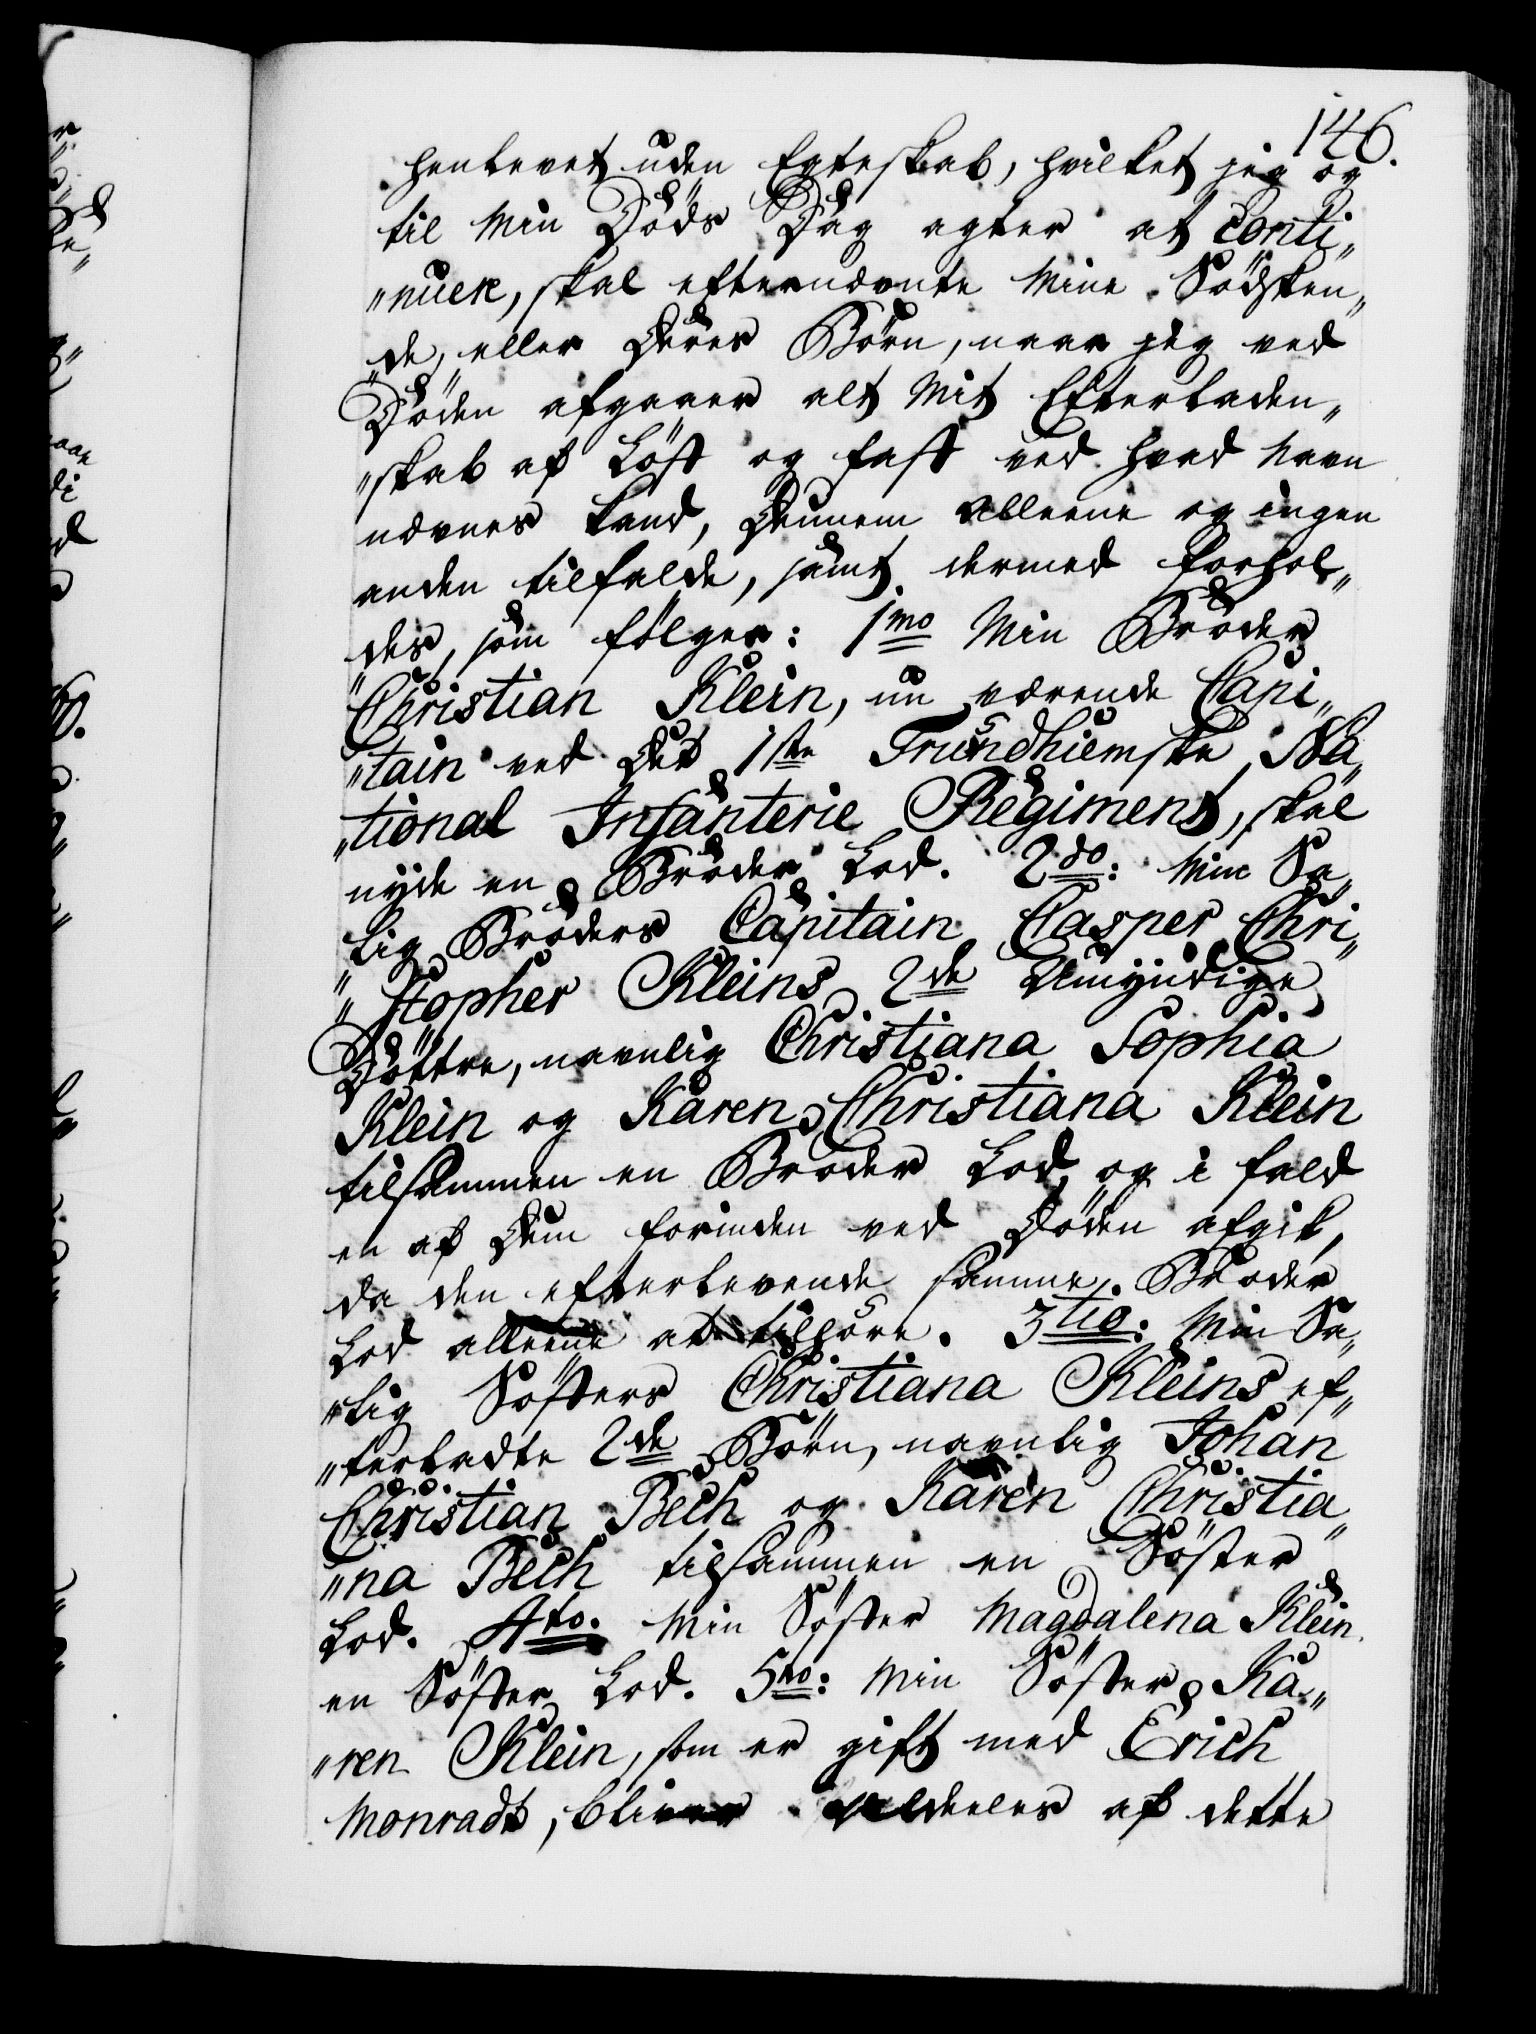 146.
henlevet uden Egteskab, hvilket jeg og
til Min Döds Dag agter at Conti„
„nuere, skal efternævnte Mine Södsken„
„de, eller Deres Börn, naar jeg ved
Döden afgaaer alt Mit Efterladen„
„skab af Löst og fast ved hvad Navn
nævnes kand, Dennem alleene og ingen
anden tilfalde, samt dermed forhol„
„des, som fölger: 1mo Min Broder
Christian Klein, nu værende Capi„
„tain ved Det 1ste Trundhiemske Na„
„tional Infanterie Regiment, skal
nyde en Broder Lod. 2do: Min Sa„
„lig Broders Capitain Casper Chri„
„stopher Kleins 2de Umyndige
Döttre, navnlig Christiana Sophia
Klein og Karen Christiana Klein
tilsammen en Broder Lod, og i fald
en af Dem forinden ved Döden afgik,
da den efterlevende samme Broder
Lod alleene at tilhöre. 3tio: Min Sa„
„lig Sösters Christiana Kleins ef„
„terladte 2de Börn, navnlig Johan
Christian Bech og Karen Christia„
„na Bech tilsammen en Söster
Lod. 4to. Min Söster Magdalena Klein
en Söster Lod. 5to: Min Söster Ka„
„ren Klein, som er gift med Erich
Monradt, bliver aldeeles af dette